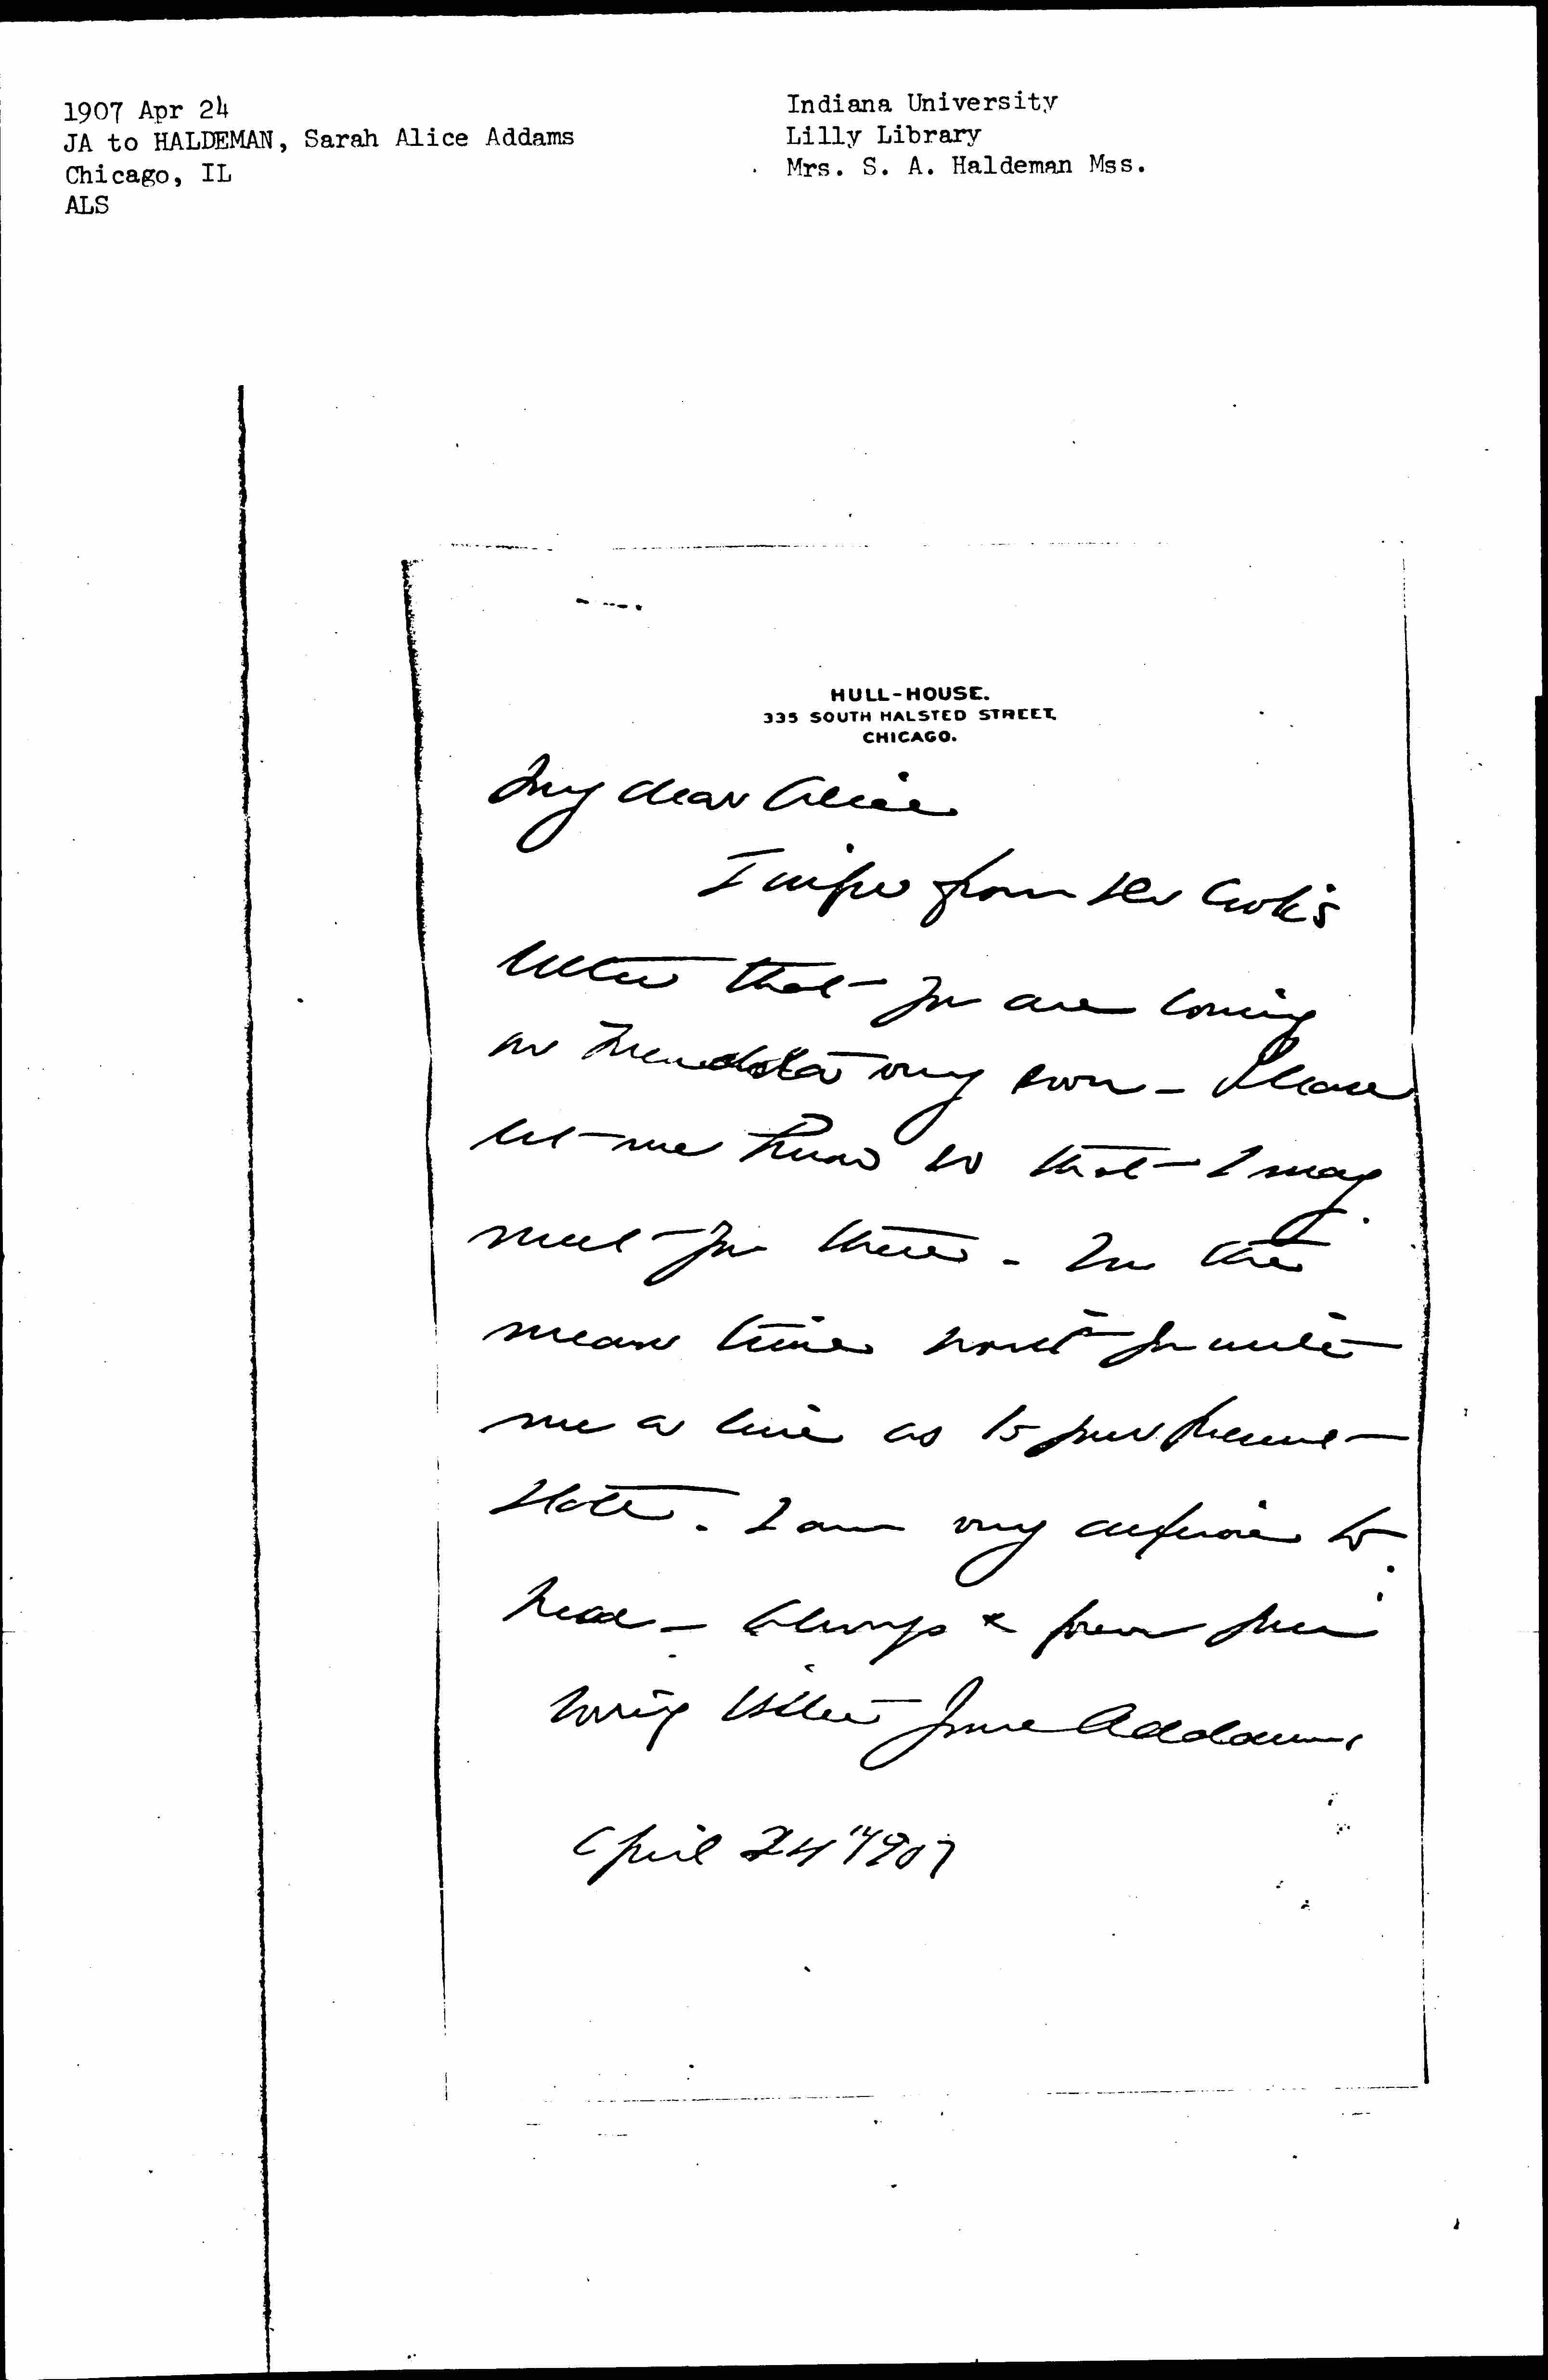 1907 Apr 24
JA to HALDEMAN, Sarah Alice Addams
Chicago, IL
ALS
Indiana University
Lilly Library
Mrs. S. A. Haldeman Mss.
HULL-HOUSE.
335 SOUTH HALSTED STREET,
CHICAGO.
My dear Alice
I infer from
letter that you are coming
to Mendota very soon - Please
let me know so that I may
meet you there - In the
mean time won't you write
me a line as to your present
state. I am very anxious to
hear - Always & forever your
loving sister Jane Addams
April 24" 1907